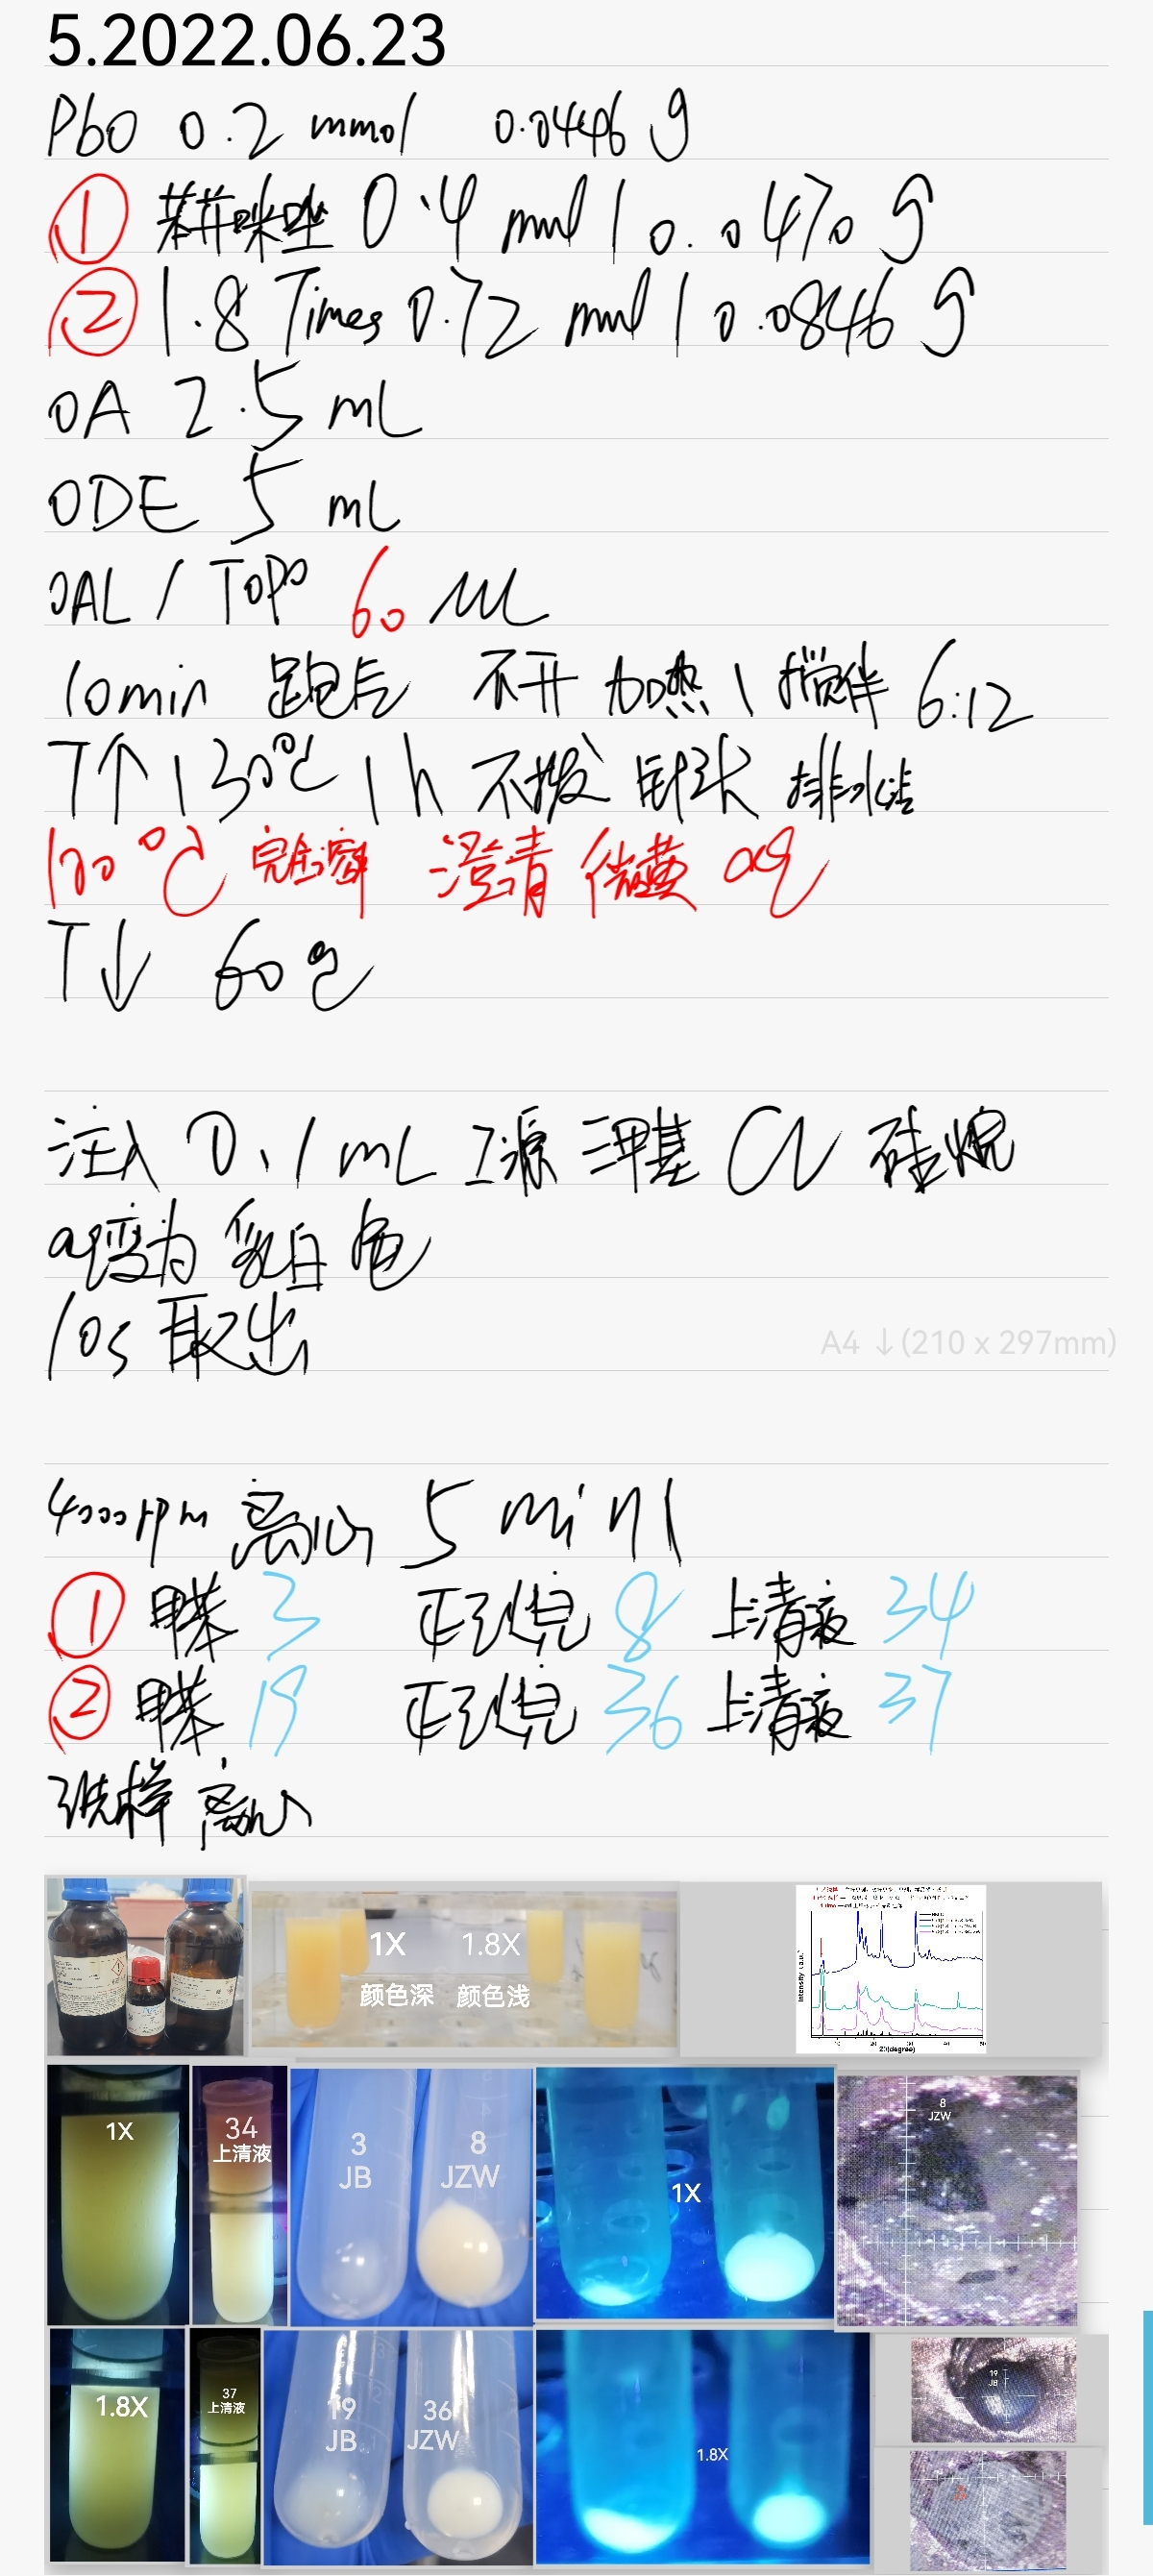 5.2022.06.23
PbO 0.2 mmol 0.0446 g
① 苯并咪唑 0.4 mmol 0.0470 g
② 1.8 Times 0.72 mmol 0.0846 g
OA 2.5 mL
ODE 5 mL
OAL / TOPO 60 uL
10min 跑后 不开 加热 \ 搅拌 6:12
T↑ 130℃ 1h 不拔 针头 排水
100℃ 完全溶解 澄清 微黄 aq
T↓ 60℃
注入 0.1 mL 三甲基 Cl 硅烷
aq变为 乳白色
10s 取出
A4 ↓(210 x 297mm)
4000 rpm 离心 5 min
① 甲苯 3 正己烷 8 上清液 34
② 甲苯 19 正己烷 36 上清液 37
洗样 离心
1X 1.8X
颜色深 颜色浅
Intensity (a.u.)
2θ(degree)
1X
34
上清液
3
JB
8
JZW
1X
8
JZW
1.8X
37
上清液
19
JB
36
JZW
1.8X
19
JB